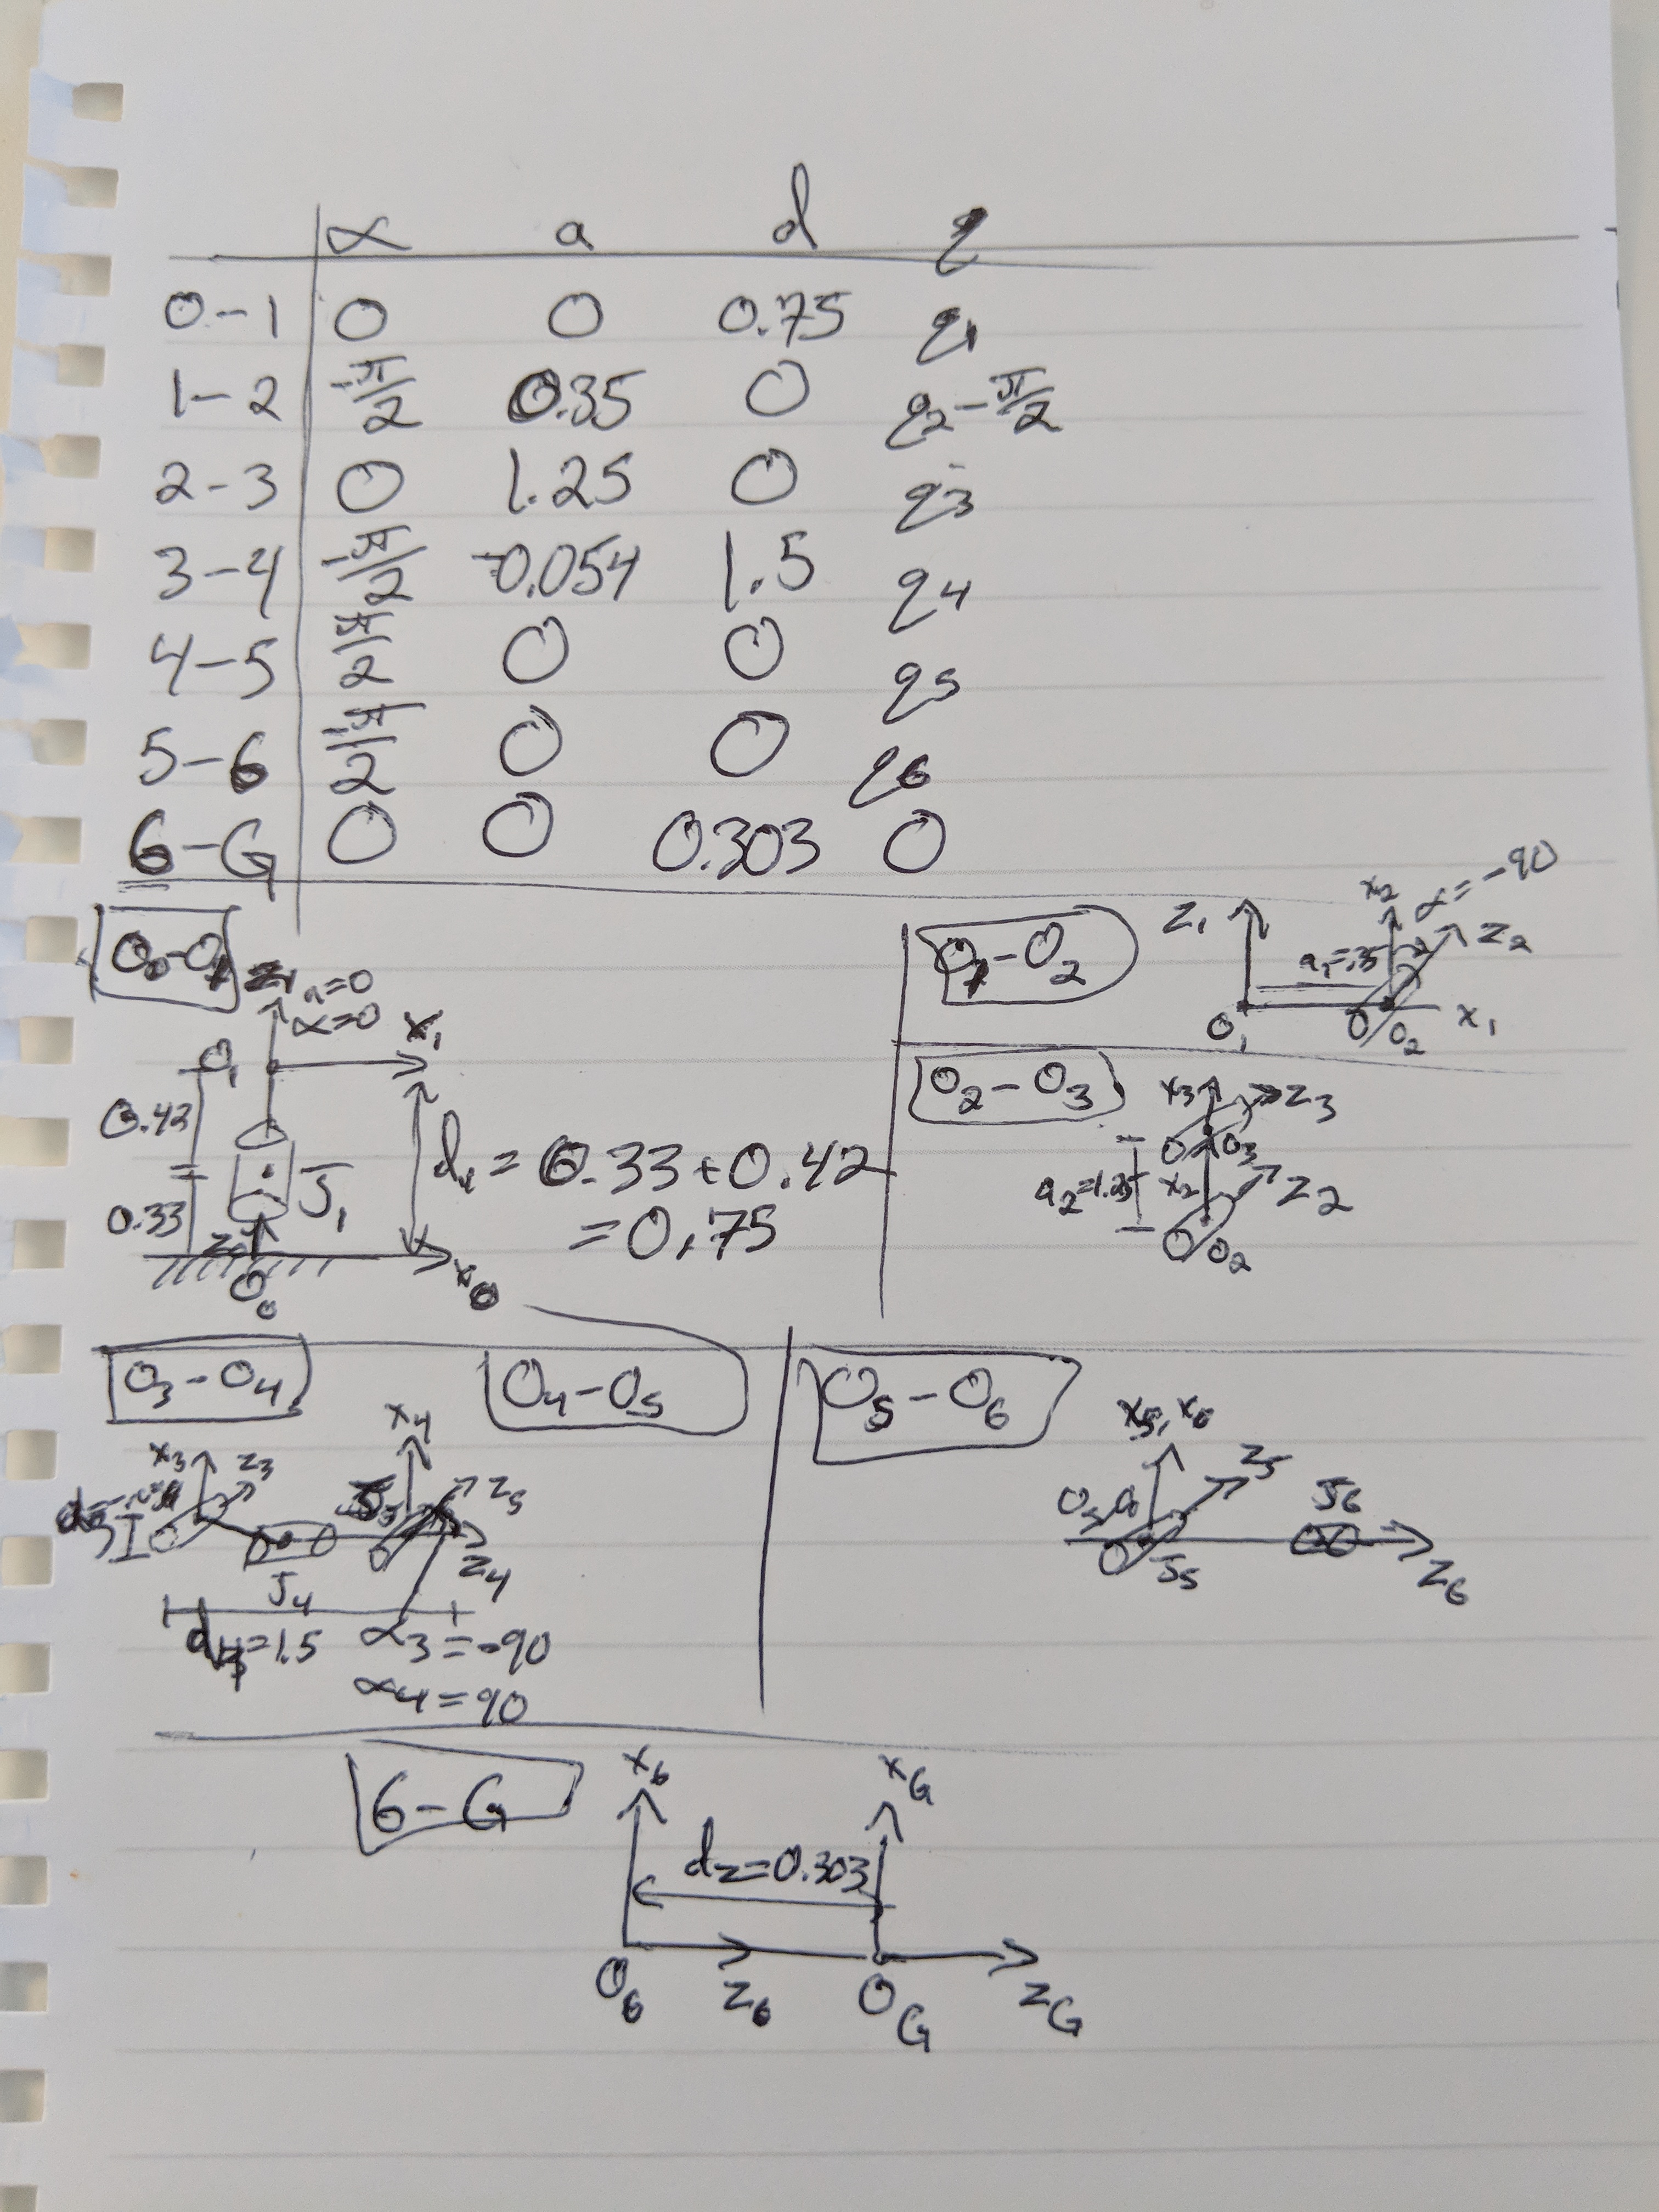 α a d q
0-1 0 0 0.75 q1
1-2 -π/2 0.35 0 q2-π/2
2-3 0 1.25 0 q3
3-4 -π/2 -0.054 1.5 q4
4-5 π/2 0 0 q5
5-6 -π/2 0 0 q6
6-G 0 0 0.303 0
O0-O1
a=0
α=0
X1
O1
0.42
J1
0.33
Z0
O0
X0
d1 = 0.33+0.42
=0.75
O1-O2
Z1
X2 α=-90
a1=.35 Z2
O1 O2 X1
O2-O3
X3 Z3
O3
a2=1.25 X2 Z2
O2
O3-O4
X3 Z3
J4
X4
O4-O5
Z5
Z4
=1.5 α3=-90
α4=90
O5-O6
X5, X6
Z5
J6
J5
Z6
6-G
X6 XG
dz=0.303
O6 Z6 OG ZG